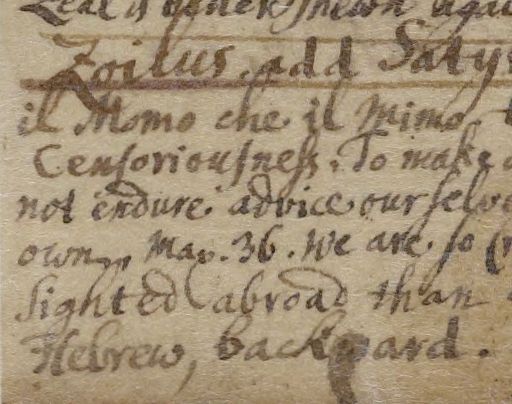 Zeal is better shewn agai
Zoilus. add Saty
il Momo che il Mimo.
Censoriousness. To make
not endure advice our selve
own, Max. 36. We are so
sighted abroad than
Hebrew, backward.